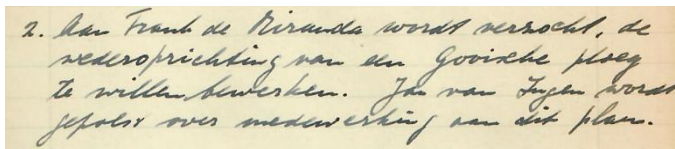 2. Aan Frank de Miranda wordt verzocht, de
wederoprichting van een Gooische ploeg
te willen bewerken. Jan van Ingen wordt
gepolst over medewerking aan dit plan.